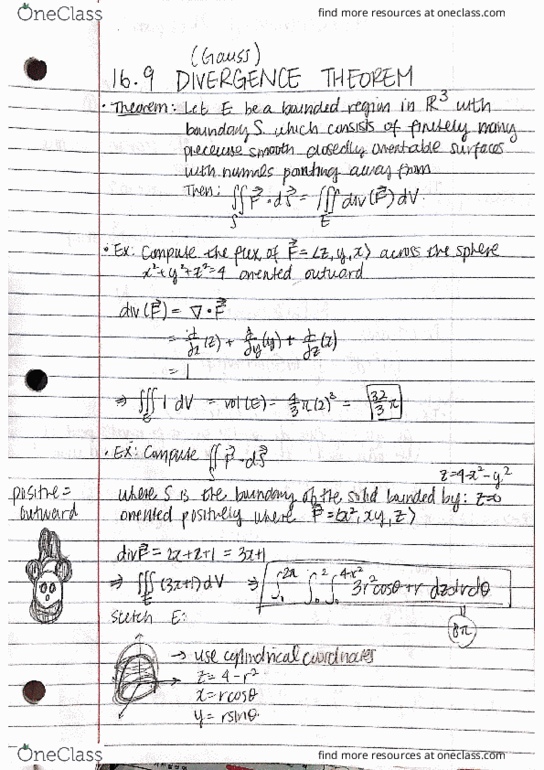 OneClass
find more resources at oneclass.com
(Gauss)
16.9 DIVERGENCE THEOREM
• Theorem: Let E be a bounded region in R³ with
boundary S which consists of finitely many
piecewise smooth closedly orientable surfaces
with normals pointing away from
Then: ∬_S F⃗ · dS⃗ = ∭_E div(F⃗) dV.
• Ex: Compute the flux of F⃗ = ⟨z, y, x⟩ across the sphere
x² + y² + z² = 4 oriented outward
div(F⃗) = ∇ · F⃗
= d/dx (z) + d/dy (y) + d/dz (x)
= 1
⇒ ∭_E 1 dV = vol(E) = 4/3 π(2)³ = 32/3 π
• Ex: Compute ∬_S F⃗ · dS⃗
z=4-x²-y²
where S is the boundary of the solid bounded by: z=0
positive =
outward
oriented positively where F⃗ = ⟨x², xy, z⟩
div F⃗ = 2x+x+1 = 3x+1
⇒ ∭_E (3x+1) dV ⇒ ∫_0^2π ∫_0^2 ∫_0^4-r² 3r² cosθ + r dz dr dθ
8π
sketch E:
→ use cylindrical coordinates
z = 4 - r²
x = r cosθ
y = r sinθ
OneClass
find more resources at oneclass.com